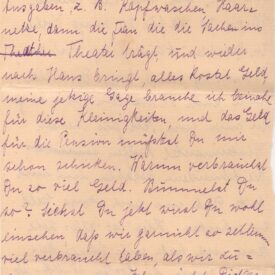 Ausgaben z. B. Kopfwaschen Haar-
netze, dann die Frau die die Sachen ins
Theater trägt, und wieder
nach Haus bringt, alles kostet Geld,
meine jetzige Gage brauche ich beinahe
für diese Kleinigkeiten, und das Geld
für die Pension müsstest Du mir
schon schicken. Warum verbrauchst
Du so viel Geld. Bummelst Du
so? Siehst Du jetzt wirst Du wohl
einsehen daß wir garnicht so schlimm
viel verbraucht haben, als wir zu-